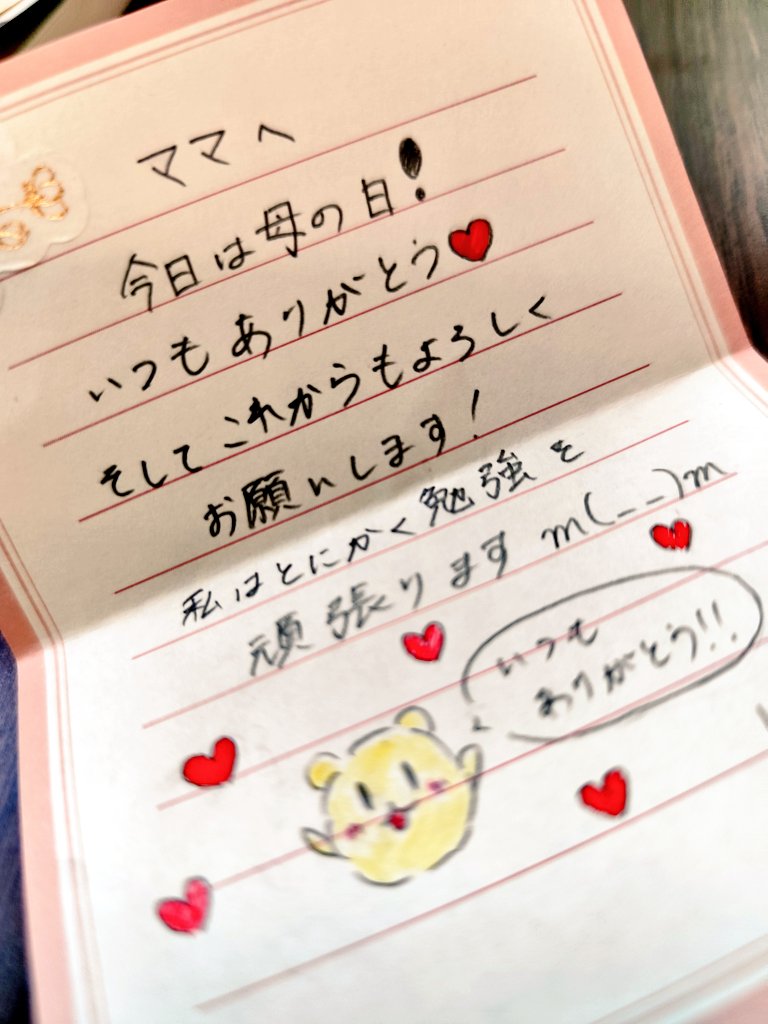 ママへ
今日は母の日!
いつもありがとう♥
そしてこれからもよろしく
お願いします!
私はとにかく勉強を
頑張りますm(__)m
いつも
ありがとう!!